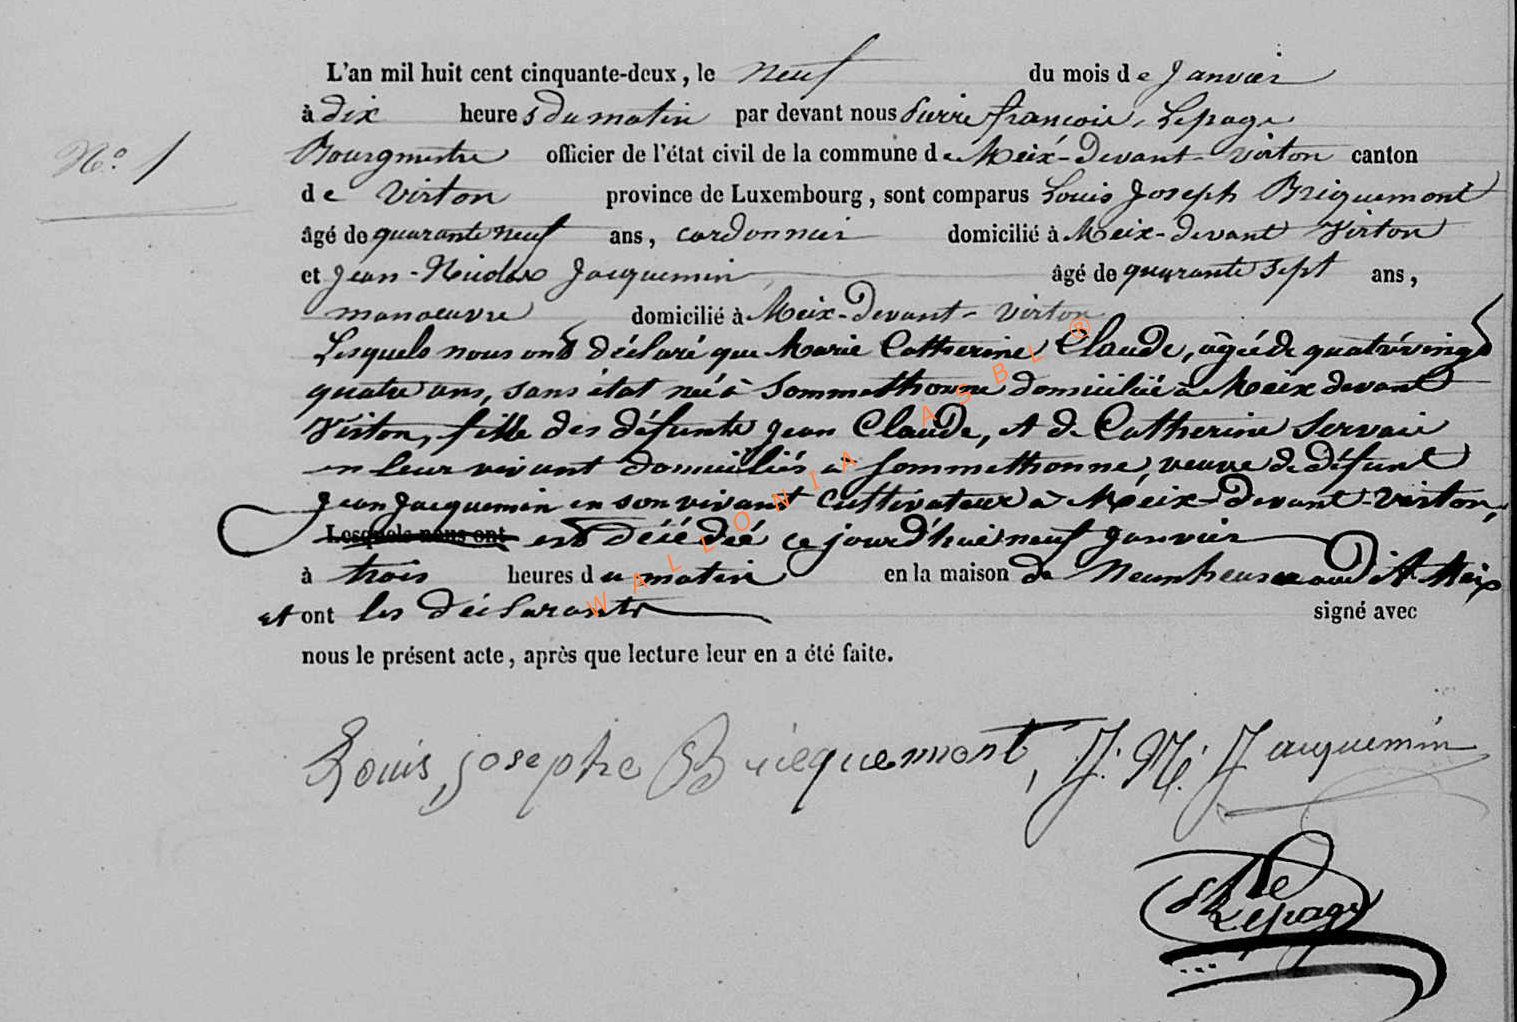 L'an mil huit cent cinquante-deux, le neuf du mois de Janvier
à dix heures du matin par devant nous Pierre françois Lepage
N.° 1
Bourgmestre officier de l'état civil de la commune de Meix-devant-virton canton
de Virton province de Luxembourg, sont comparus Louis Joseph Briquemont
âgé de quarante neuf ans, cordonnier domicilié à Meix-devant Virton
et Jean-Nicolas Jacquemin, âgé de quarante sept ans,
manoeuvre domicilié à Meix-Devant-virton
Lesquels nous ont déclaré que Marie Catherine Claude, âgée de quatrévingt
quatre ans, sans état née à Sommethonne domiciliée à Meix devant
Virton, fille des défunts Jean Claude, et de Catherine Servais
en leur vivant domiciliés a Sommethonne, veuve de défunt
Jean Jacquemin en son vivant Cultivateur a Meix-Devant-virton,
Lesquels nous ont est décédée ce jourd'hui neuf Janvier
à trois heures du matin en la maison de audit Meix
et ont les déclarants signé avec
nous le présent acte, après que lecture leur en a été faite.
Louis, josephe Bricquemont, J. N. Jacquemin
Lepage
WALLONIA ASBL ®